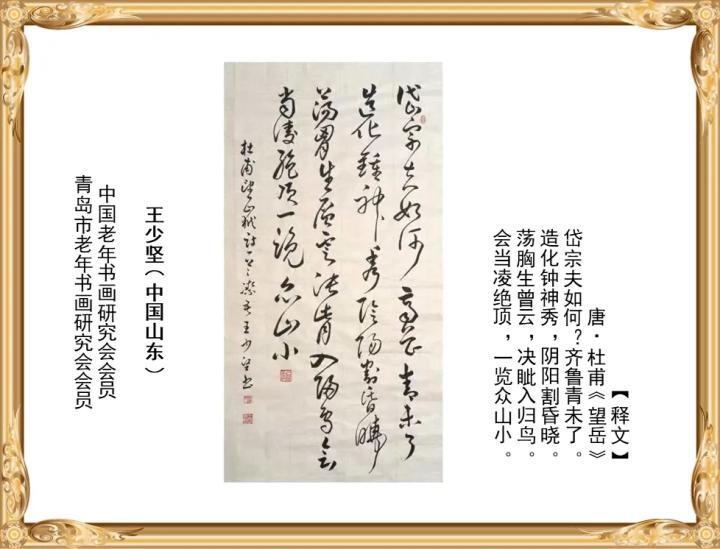 【释文】
唐·杜甫《望岳》
岱宗夫如何?齐鲁青未了。
造化钟神秀,阴阳割昏晓。
荡胸生曾云,决眦入归鸟。
会当凌绝顶,一览众山小。
岱宗夫如何齊魯青未了
造化鍾神秀陰陽割昏曉
蕩胸生層雲決眥入歸鳥會
當凌絕頂一覽眾山小
杜甫望嶽詩一首 王少堅書
王少坚(中国山东)
中国老年书画研究会会员
青岛市老年书画研究会会员